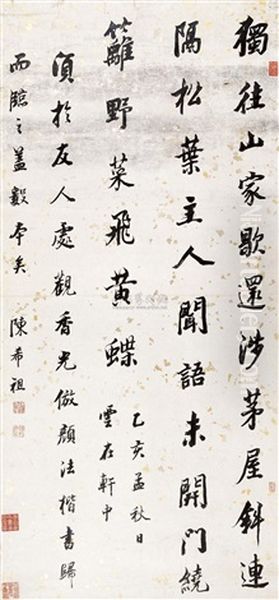 獨往山家歇還涉茅屋斜連
隔松葉主人聞語未開門繞
籬野菜飛黃蝶
乙亥孟秋日
雲在軒中
須於友人處觀香光倣顏法楷書歸
而臨之蓋數本矣
陳希祖